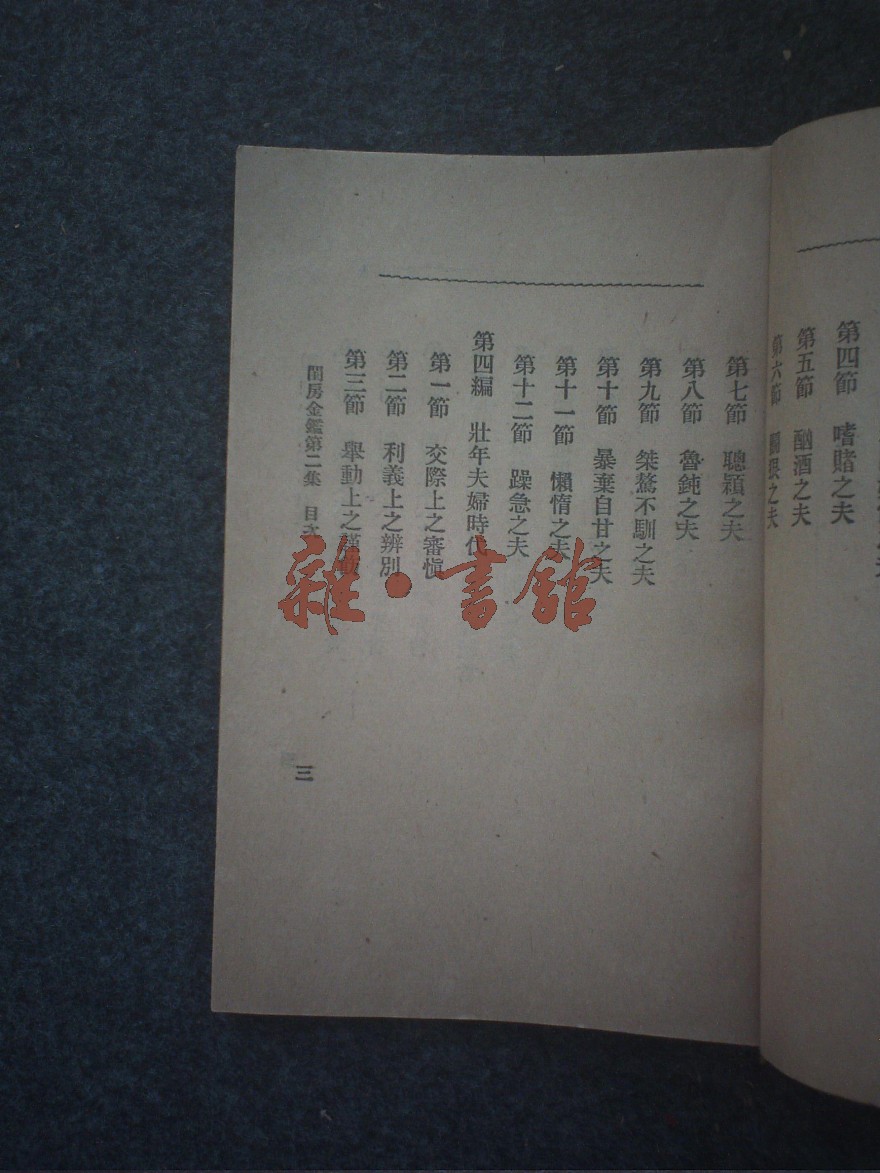 第四節　嗜賭之夫
第五節　酗酒之夫
第六節　之夫
第七節　聰穎之夫
第八節　魯鈍之夫
第九節　桀驁不馴之夫
第十節　暴棄自甘之夫
第十一節　懶惰之夫
第十二節　躁急之夫
第四編　壯年夫婦時代
第一節　交際上之審愼
第二節　利義上之辨別
第三節　舉動上之
閨房金鑑第二集　目次
三
雜·書館